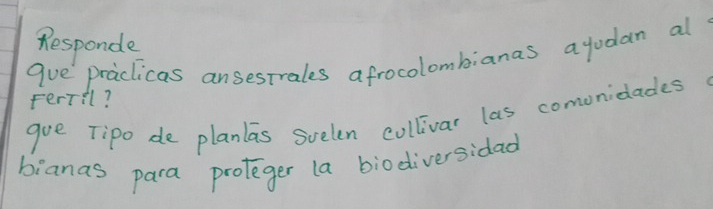 Responde
que práclicas ansestrales afrocolombianas ayudan al
FerTil?
que Tipo de plantas suelen cullivar las comonidades
bianas para proteger la biodiversidad